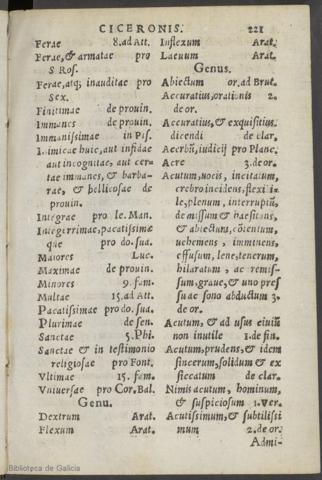 CICERONIS. 221
Ferae 8. ad Att.
Ferae, & armatae pro
S Ros.
Ferae, atq; inauditae pro
Sex.
Finitimae de prouin.
Immanes de prouin.
Immanissimae in Pis.
Inimicae huic, aut infidae
aut incognitae, aut cer
tae immanes, & barba-
rae, & bellicosae de
prouin.
Integrae pro le. Man.
Integerrimae, pacatissimae
que pro do. sua.
Maiores Luc.
Maximae de prouin.
Minores 9. fam.
Multae 15. ad Att.
Pacatissimae pro do. sua.
Plurimae de sen.
Sanctae 5. Phi.
Sanctae & in testimonio
religiosae pro Font.
Vltimae 15. fam.
Vniuersae pro Cor. Bal.
Genu.
Dextrum Arat.
Flexum Arat.
Inflexum Arat.
Laeuum Arat.
Genus.
Abiectum or. ad Brut.
Accuratius, orationis 2.
de or.
Accuratius, & exquisitius
dicendi de clar.
Acerbū, iudicij pro Planc.
Acre 3. de or.
Acutum, uocis, incitatum,
crebro incidens, flexibi
le, plenum, interruptū,
demissum & haesitans,
& abiectum, cōtentum,
uehemens, imminens,
effusum, lene, tenerum,
hilaratum, ac remis-
sum, graue, & uno pres
su ac sono abductum 3.
de or.
Acutum, & ad usus ciuiū
non inutile 1. de fin.
Acutum, prudens, & idem
sincerum, solidum & ex
siccatum de clar.
Nimis acutum, hominum,
& suspiciosum 1. Ver.
Acutissimum, & subtilissi
mum 2. de or.
Admi-
Biblioteca de Galicia